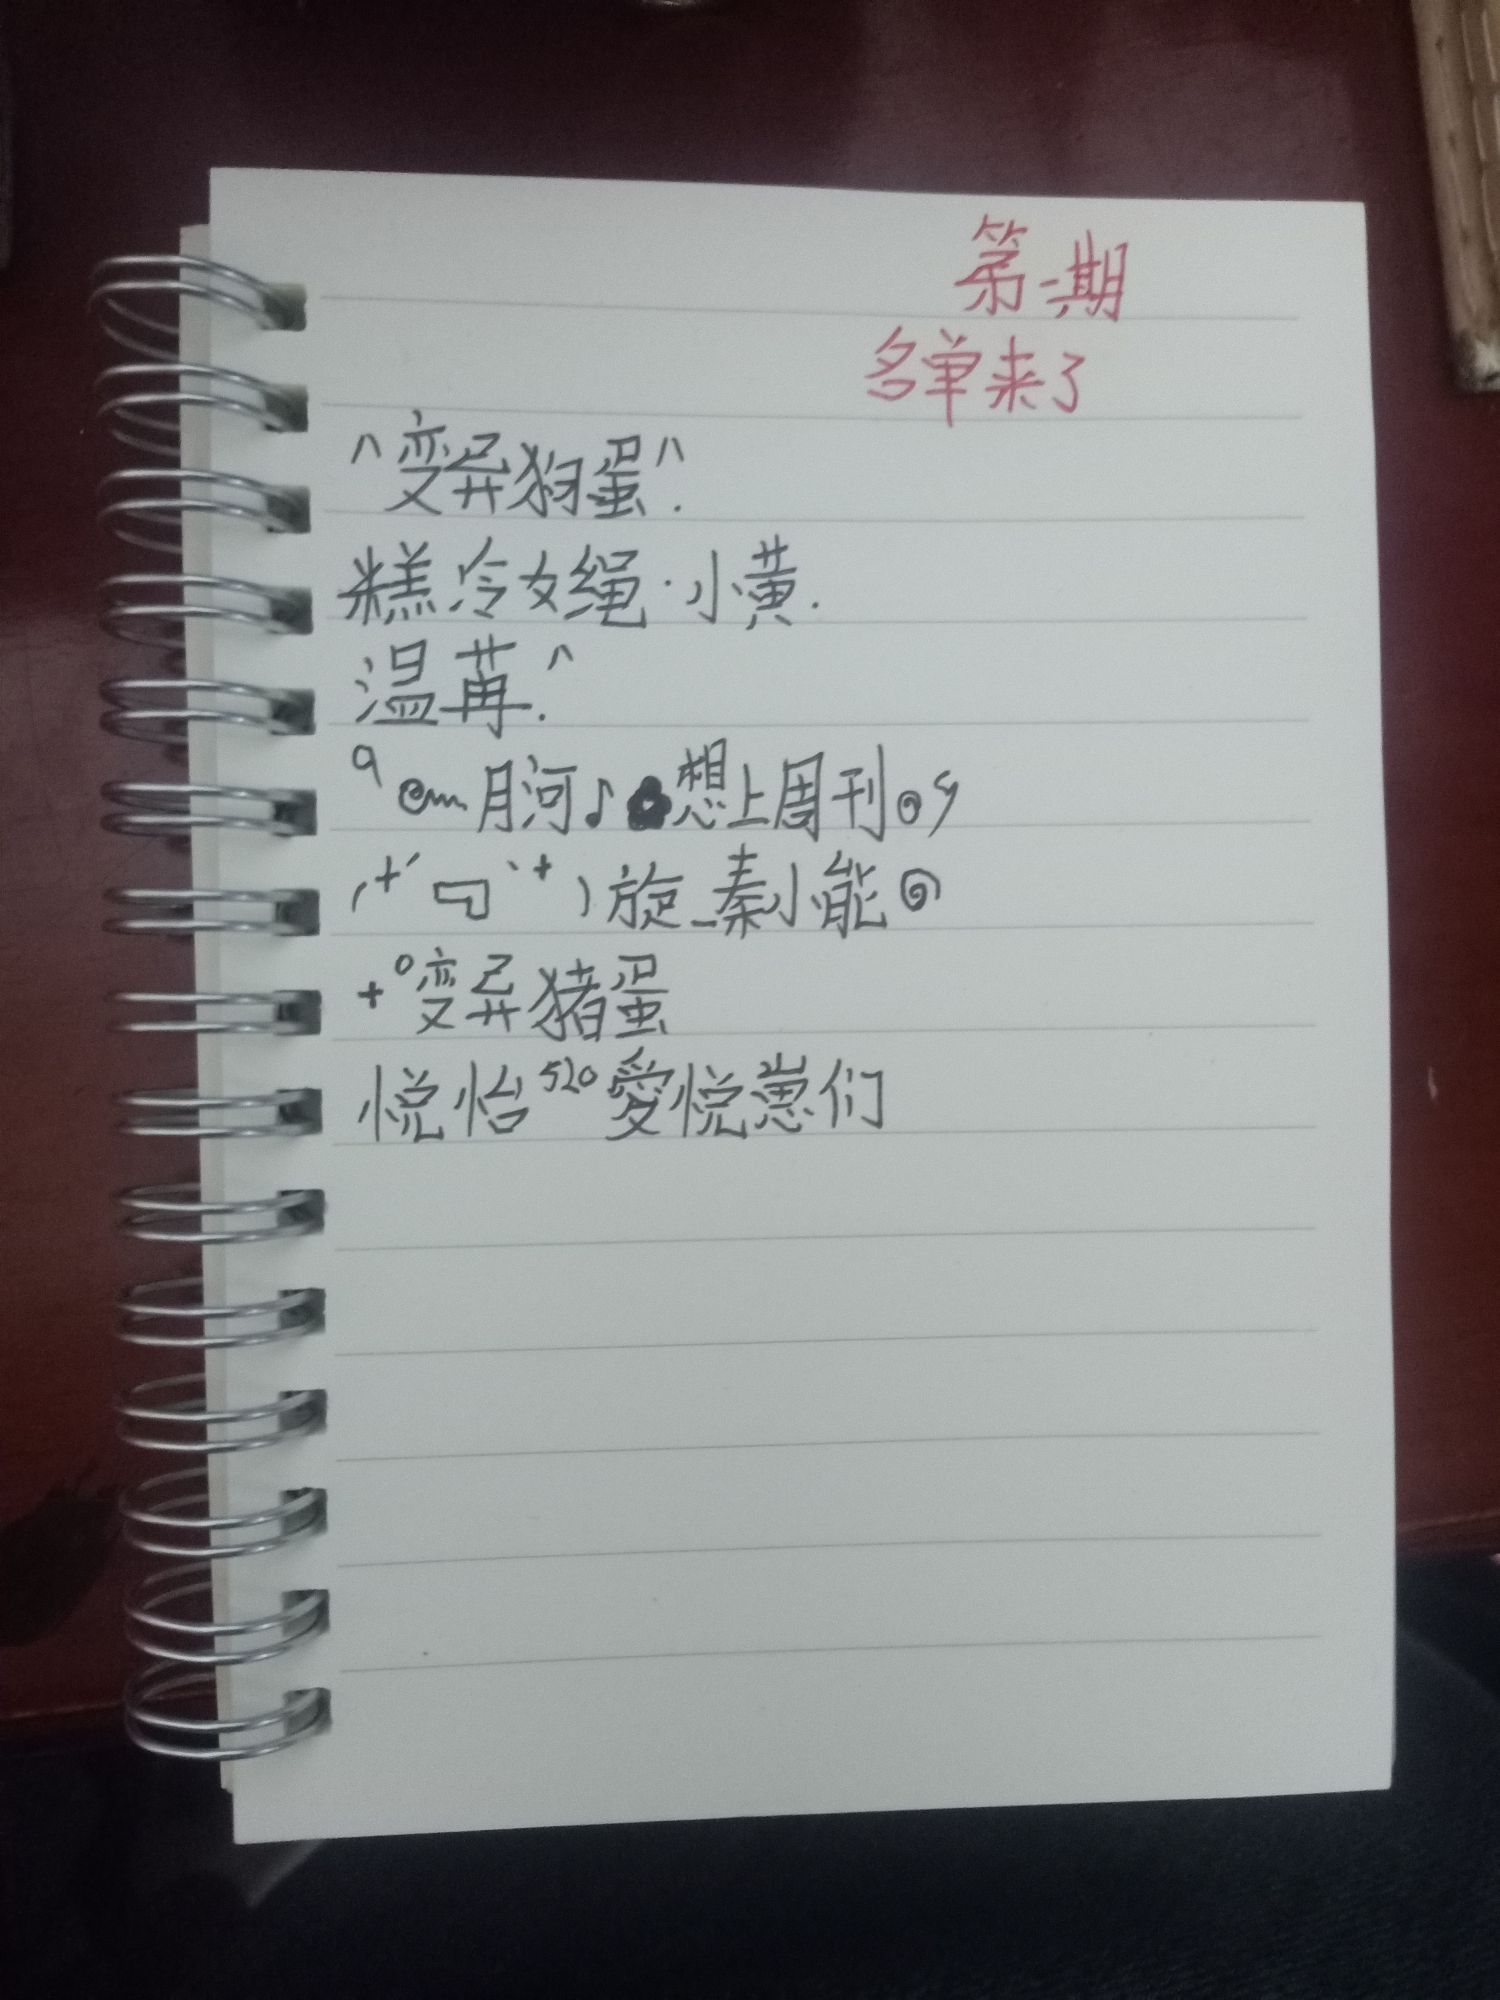 第一期
名单来了
^变异狗蛋^.
糕冷女绳·小黄.
温苒.^
月河♪想上周刊
旋_秦小能
+°变异猪蛋
悦怡520愛悦崽们